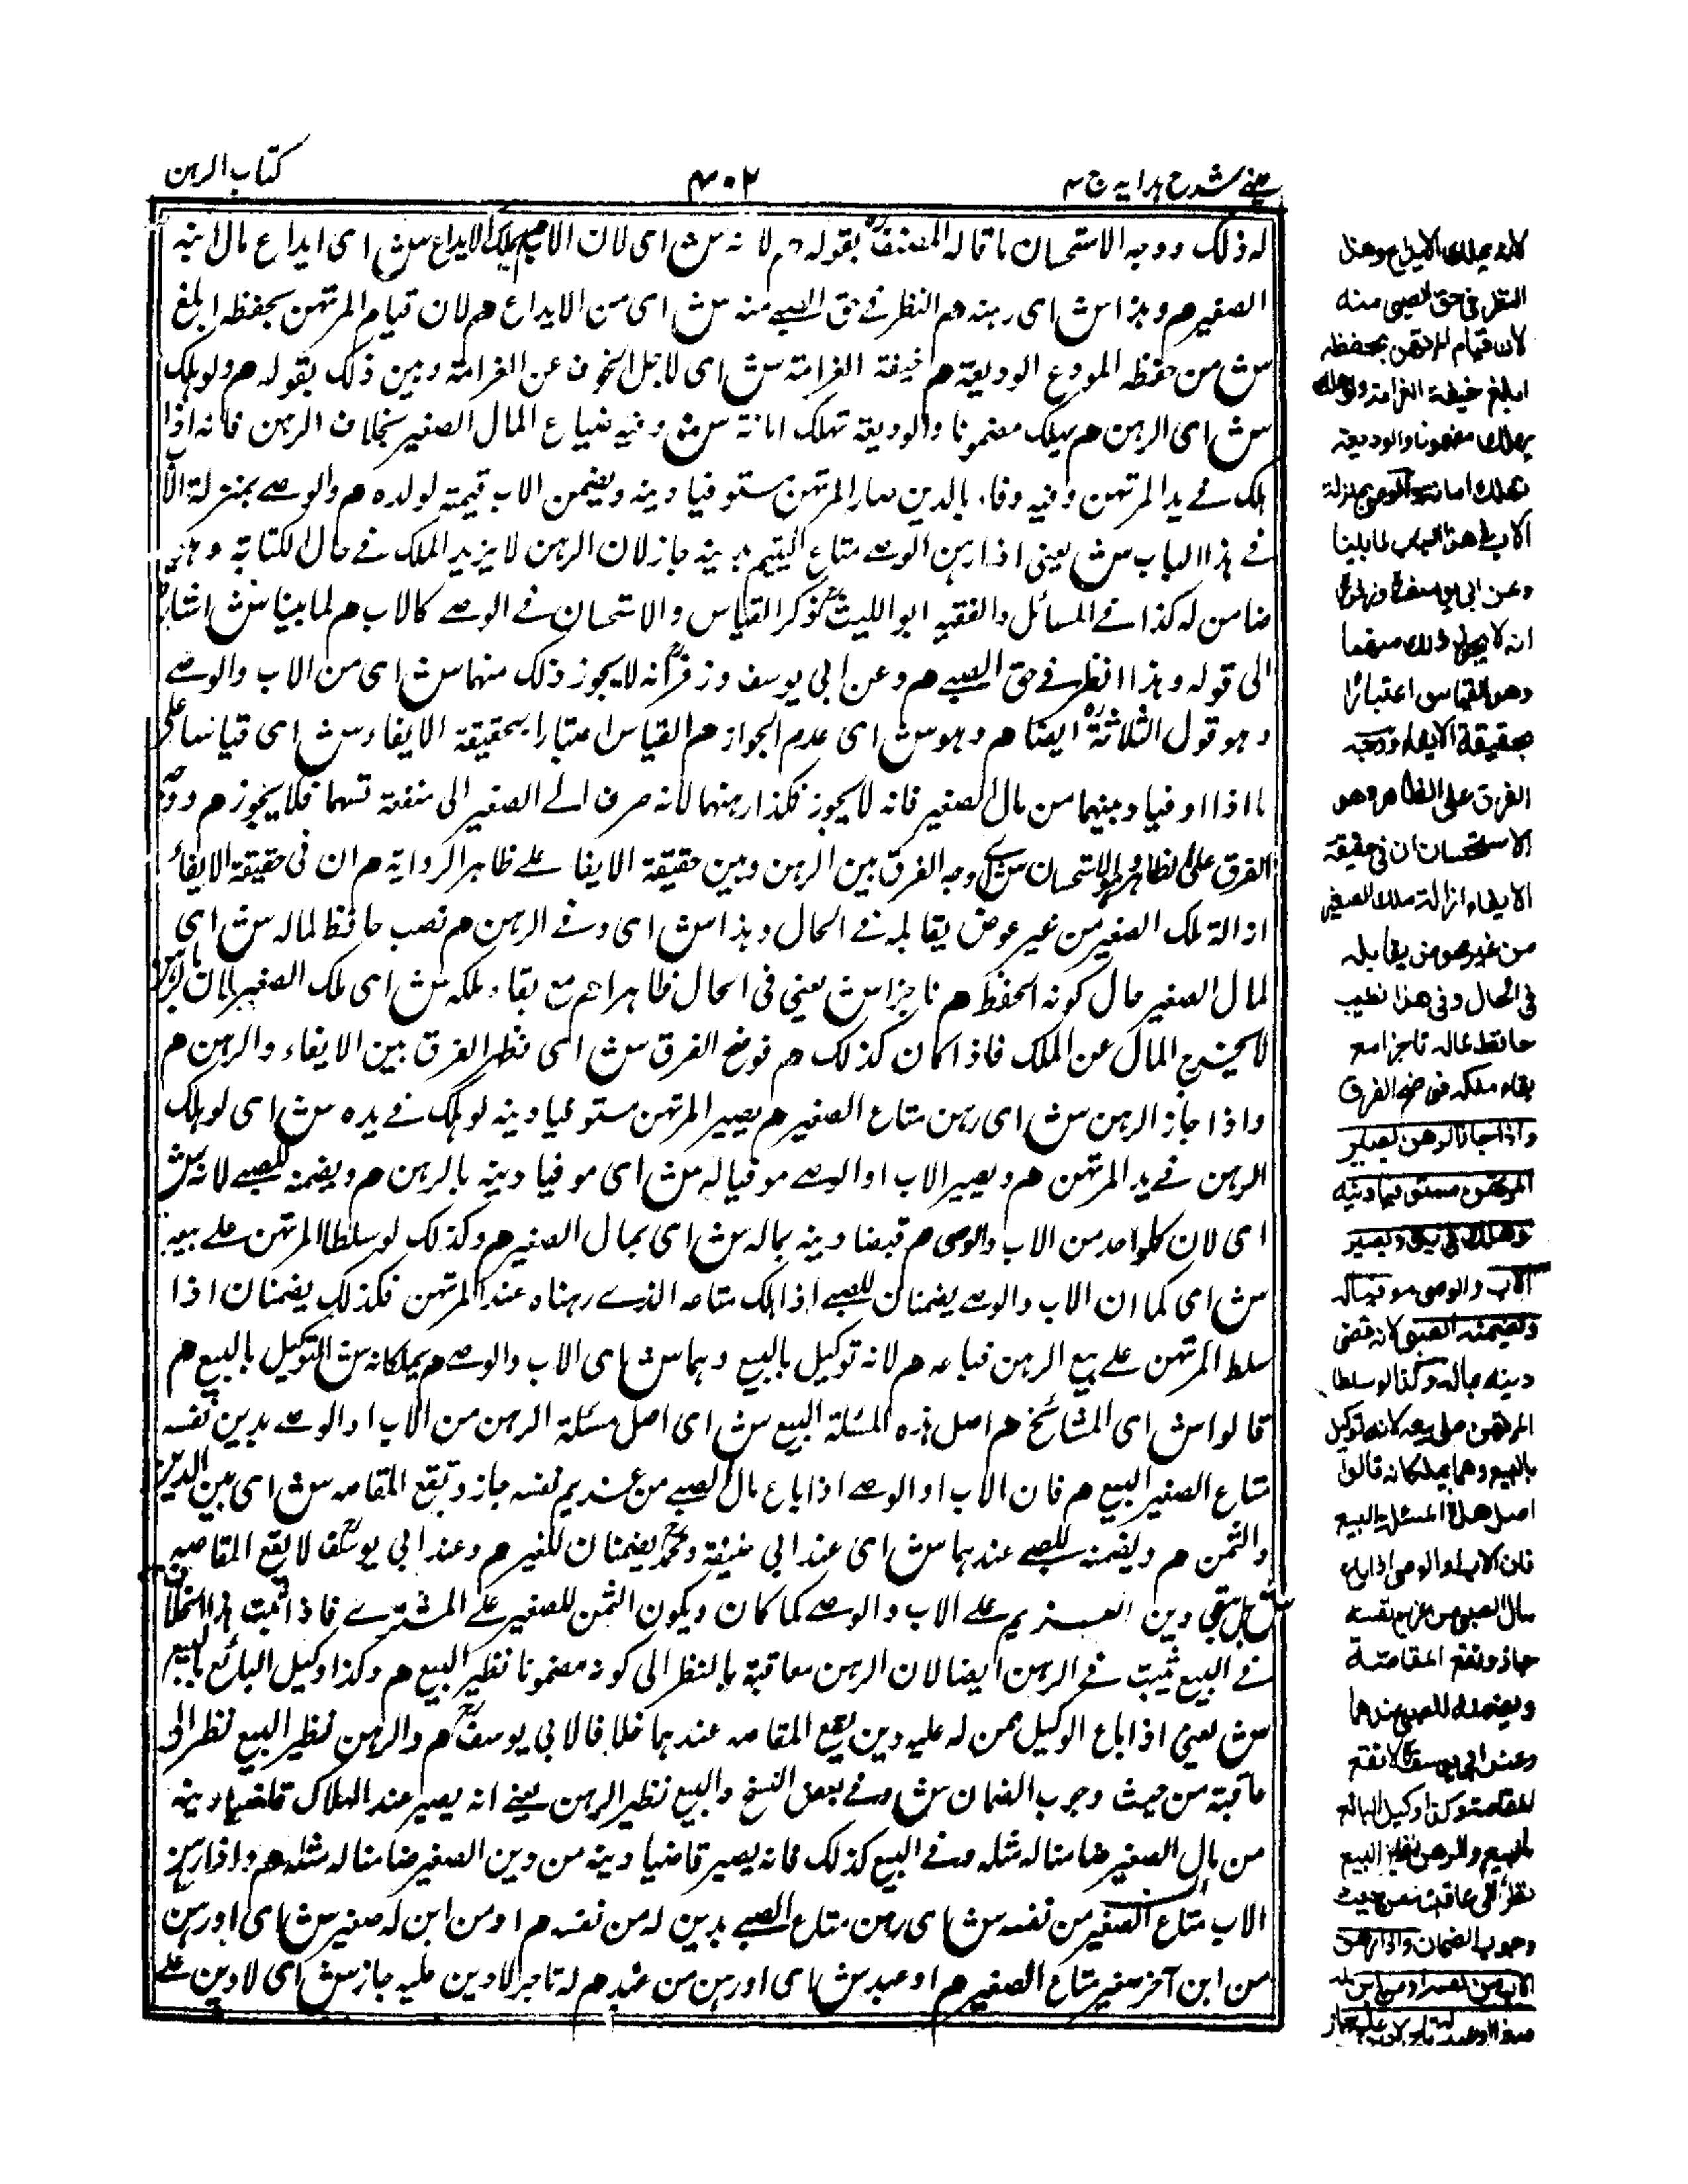 عينى شرح هدايه ج ٤
٤٠٢
كتاب الرهن
له ذلك ووجه الاستحسان ما قاله المصنف بقوله م لانه ش اى لان الاب م يملك الايداع ش اى ايداع مال ابنه
الصغير م وهذا ش اى رهنه م انظر فى حق الصبى منه ش اى من الايداع م لان قيام المرتهن بحفظه ابلغ
ش من حفظ المودع الوديعة م خيفة الغرامة ش اى لاجل الخوف عن الغرامة وبين ذلك بقوله م ولو هلك
ش اى الرهن م يهلك مضمونا والوديعة تهلك امانة ش وفيه ضياع المال الصغير بخلاف الرهن فانه اذا
هلك فى يد المرتهن وفيه وفاء بالدين صار المرتهن مستوفيا دينه ويضمن الاب قيمته لولده م والوصى بمنزلة الاب
فى هذا الباب ش يعنى اذا رهن الوصى متاع اليتيم بدينه جاز لان الرهن لا يزيد الملك فى حال الكتابة وهو
ضامن له كذا فى المسائل والفقيه ابو الليث ذكر القياس والاستحسان فى الوصى كالاب م لما بينا ش اشار به
الى قوله وهذا انظر فى حق الصبى م وعن ابى يوسف وزفر انه لا يجوز ذلك منهما ش اى من الاب والوصى
وهو قول الثلاثة ايضا م وهو ش اى عدم الجواز م القياس اعتبارا بحقيقة الايفاء ش اى قياسا على
ما اذا اوفيا دينهما من مال الصغير فانه لا يجوز فكذا رهنهما لانه صرف مال الصغير الى منفعة نفسهما فلا يجوز م ووجه
الفرق على الظاهر وهو الاستحسان ش اى وجه الفرق بين الرهن وبين حقيقة الايفا على ظاهر الرواية م ان فى حقيقة الايفاء
ازالة ملك الصغير من غير عوض يقابله فى الحال وهذا ش اى وفى الرهن م نصب حافظ لماله ش اى
لمال الصغير حال كونه الحفظ م ناجزا ش يعنى فى الحال ظاهرا م مع بقاء ملكه ش اى ملك الصغير لان الرهن
لا يخرج المال عن الملك فاذا كان كذلك م فوضح الفرق ش اى فظهر الفرق بين الايفاء والرهن م
واذا جاز الرهن ش اى رهن متاع الصغير م يصير المرتهن مستوفيا دينه لو هلك فى يده ش اى لو هلك
الرهن فى يد المرتهن م ويصير الاب او الوصى موفيا له ش اى موفيا دينه بالرهن م ويضمنه للصبى لانه ش
اى لان كل واحد من الاب والوصى م قبضا دينه بماله ش اى بمال الصغير م وكذلك لو سلطا المرتهن على بيعه
ش اى كما ان الاب والوصى يضمنان للصبى اذا هلك متاعه الذى رهناه عند المرتهن فكذلك يضمنان اذا
سلط المرتهن على بيع الرهن فباعه م لانه توكيل بالبيع وهما ش اى الاب والوصى م يملكانه ش التوكيل بالبيع م
قالوا ش اى المشائخ م اصل هذه المسئلة البيع ش اى اصل مسئلة الرهن من الاب او الوصى بدين نفسه
متاع الصغير البيع م فان الاب او الوصى اذا باع مال الصبى من غريم نفسه جاز وتقع المقاصه ش اى بين الدين
والثمن م ويضمنه للصبى عندهما ش اى عند ابى حنيفة ومحمد يضمنان للصغير م وعند ابى يوسف لا يقع المقاصه
ش بل يبقى دين الغريم على الاب والوصى كما كان ويكون الثمن للصغير على المشترى فاذا ثبت هذا الخلاف
فى البيع ثبت فى الرهن ايضا لان الرهن معاقبة بالنظر الى كونه مضمونا نظير البيع م وكذا وكيل البائع بالبيع
ش يعنى اذا باع الوكيل ممن له عليه دين يقع المقاصه عندهما خلافا لابى يوسف م والرهن نظير البيع نظرا الى
عاقبة من حيث وجوب الضمان ش وفى بعض النسخ والبيع نظير الرهن يعنى انه يصير عند الهلاك قاضيا دينه
من مال الصغير ضامنا له مثله وفى البيع كذلك فانه يصير قاضيا دينه من دين الصغير ضامنا له مثله م واذا رهن
الاب متاع الصغير من نفسه ش اى رهن متاع الصبى بدين له من نفسه م او من ابن له صغير ش اى او رهن
من ابن آخر صغير متاع الصغير م او عبد ش اى او رهن من عبد م له تاجر لا دين عليه جاز ش اى لا دين على
لانه يملك الايداع وهذا
انظر فى حق الصبى منه
لان قيام المرتهن بحفظه
ابلغ خيفة الغرامة ولو هلك
يهلك مضمونا والوديعة
تهلك امانة والوصى بمنزلة
الاب فى هذا الباب لما بينا
وعن ابى يوسف وزفر
انه لا يجوز ذلك منهما
وهو القياس اعتبارا
بحقيقة الايفاء ووجه
الفرق على الظاهر وهو
الاستحسان ان فى حقيقة
الايفاء ازالة ملك الصغير
من غير عوض يقابله
فى الحال وفى هذا نصب
حافظ لماله ناجزا مع
بقاء ملكه فوضح الفرق
واذا جاز الرهن يصير
المرتهن مستوفيا دينه
لو هلك فى يده ويصير
الاب والوصى موفيا له
ويضمنه للصبى لانه قضى
دينه بماله وكذا لو سلطا
المرتهن على بيعه لانه توكيل
بالبيع وهما يملكانه قالوا
اصل هذه المسئلة البيع
فان الاب او الوصى اذا باع
مال الصبى من غريم نفسه
جاز وتقع المقاصة
ويضمنه للصبى عندهما
وعند ابى يوسف لا تقع
المقاصة وكذا وكيل البائع
بالبيع والرهن نظير البيع
نظرا الى عاقبته من حيث
وجوب الضمان واذا رهن
الاب من نفسه او من ابن له
صغير او عبد له تاجر لا دين عليه جاز